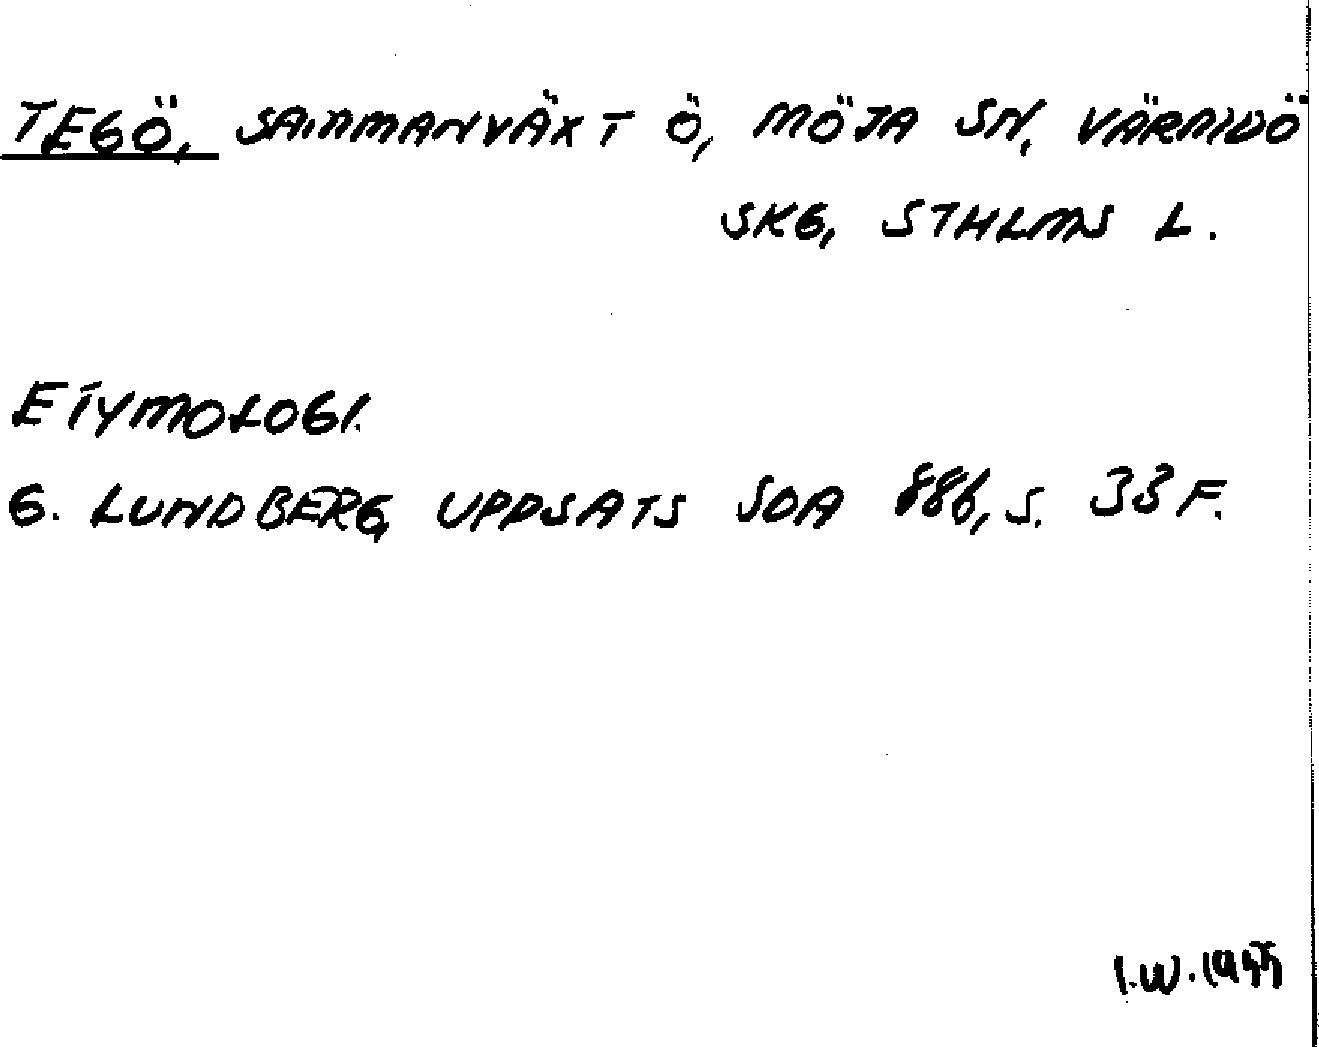 TEGÖ, SAMMANVÄXT Ö, MÖJA SN, VÄRMDÖ
SKG, STHLMS L.
ETYMOLOGI.
G. LUNDBERG, UPPSATS SOA 886, S. 33 F.
I.W.